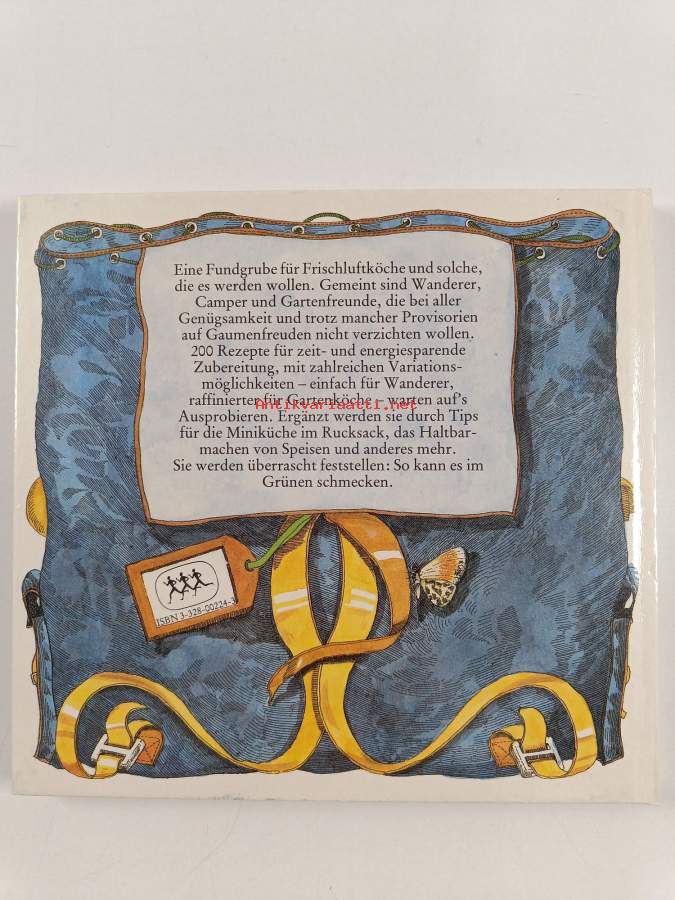 Eine Fundgrube für Frischluftköche und solche,
die es werden wollen. Gemeint sind Wanderer,
Camper und Gartenfreunde, die bei aller
Genügsamkeit und trotz mancher Provisorien
auf Gaumenfreuden nicht verzichten wollen.
200 Rezepte für zeit- und energiesparende
Zubereitung, mit zahlreichen Variations-
möglichkeiten – einfach für Wanderer,
raffinierter für Gartenköche – warten auf's
Antikvariaatti.net
Ausprobieren. Ergänzt werden sie durch Tips
für die Miniküche im Rucksack, das Haltbar-
machen von Speisen und anderes mehr.
Sie werden überrascht feststellen: So kann es im
Grünen schmecken.
ISBN 3-328-00224-3